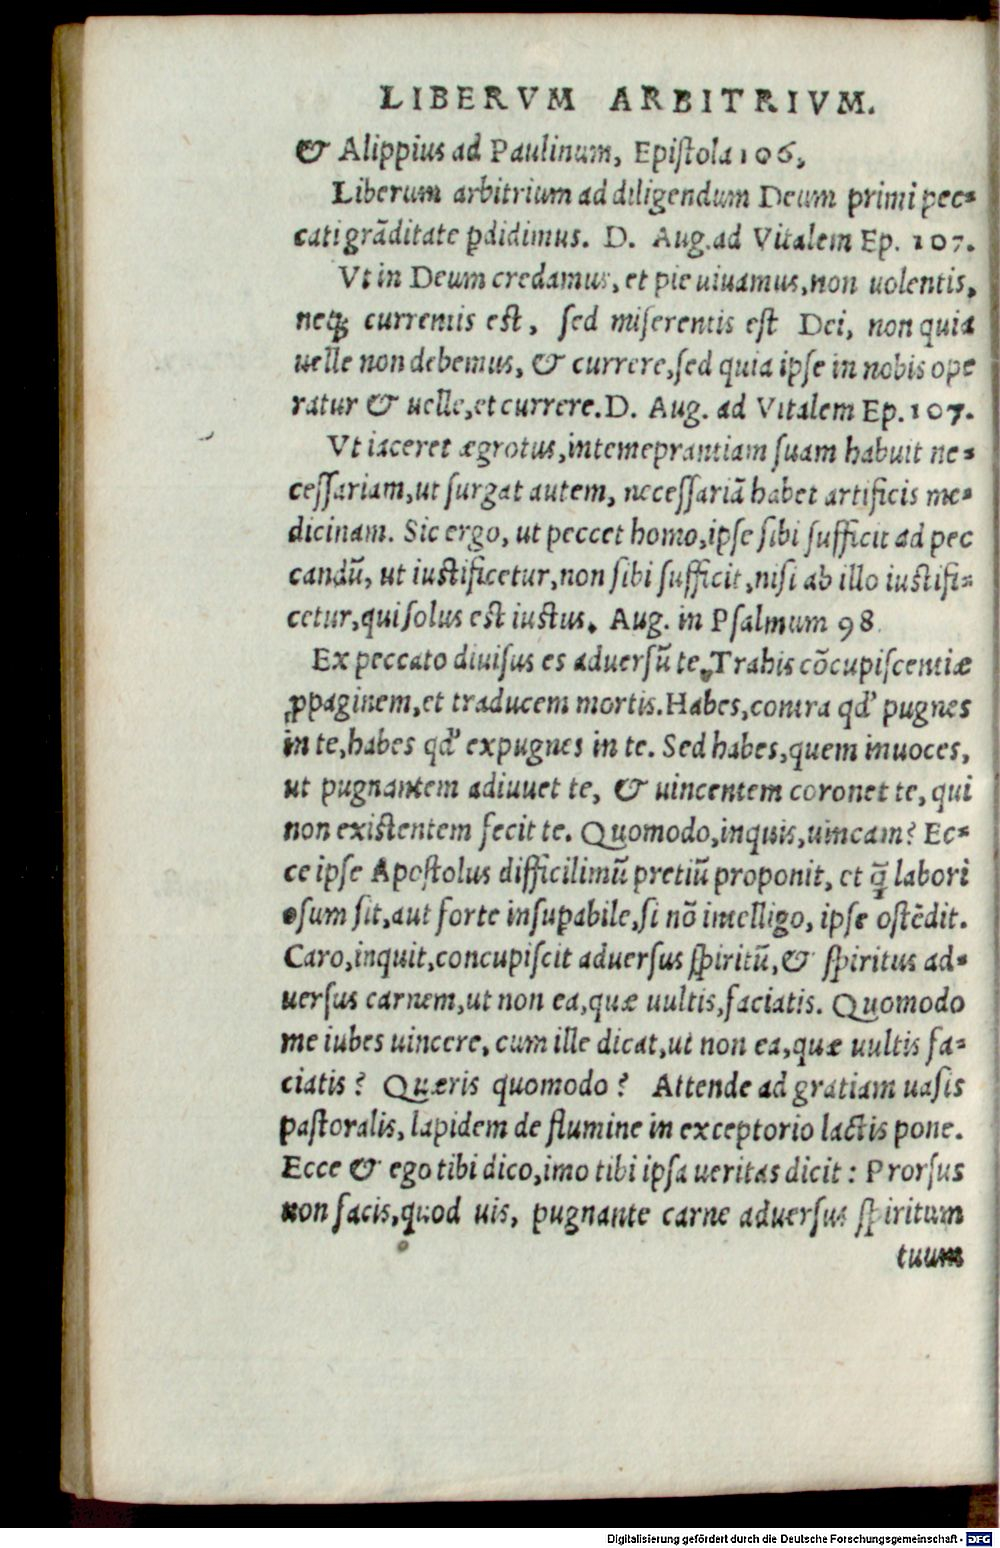 LIBERVM ARBITRIVM.
& Alippius ad Paulinum, Epistola 106,
Liberum arbitrium ad diligendum Deum primi pec-
cati grãditate ꝑdidimus. D. Aug. ad Vitalem Ep. 107.
Vt in Deum credamus, et pie uiuamus, non uolentis,
neqꝫ currentis est, sed miserentis est Dei, non quia
uelle non debemus, & currere, sed quia ipse in nobis ope
ratur & uelle, et currere. D. Aug. ad Vitalem Ep. 107.
Vt iaceret ægrotus, intemeprantiam suam habuit ne-
cessariam, ut surgat autem, necessariã habet artificis me-
dicinam. Sic ergo, ut peccet homo, ipse sibi sufficit ad pec
candũ, ut iustificetur, non sibi sufficit, nisi ab illo iustifi-
cetur, qui solus est iustus. Aug. in Psalmum 98.
Ex peccato diuisus es aduersũ te. Trahis cõcupiscentiæ
ꝓpaginem, et traducem mortis. Habes, contra qd' pugnes
in te, habes qd' expugnes in te. Sed habes, quem inuoces,
ut pugnantem adiuuet te, & uincentem coronet te, qui
non existentem fecit te. Quomodo, inquis, uincam? Ec-
ce ipse Apostolus difficilimũ pretiũ proponit, et q̃ labori
osum sit, aut forte insuꝑabile, si nõ intelligo, ipse ostẽdit.
Caro, inquit, concupiscit aduersus spiritũ, & spiritus ad-
uersus carnem, ut non ea, quæ uultis, faciatis. Quomodo
me iubes uincere, cum ille dicat, ut non ea, quæ uultis fa-
ciatis? Quæris quomodo? Attende ad gratiam uasis
pastoralis, lapidem de flumine in exceptorio lactis pone.
Ecce & ego tibi dico, imo tibi ipsa ueritas dicit: Prorsus
non facis, quod uis, pugnante carne aduersus spiritum
tuum
Digitalisierung gefördert durch die Deutsche Forschungsgemeinschaft - DFG